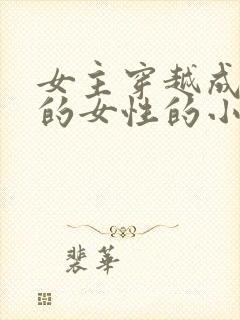 女主穿越成
的女性的小
裴華